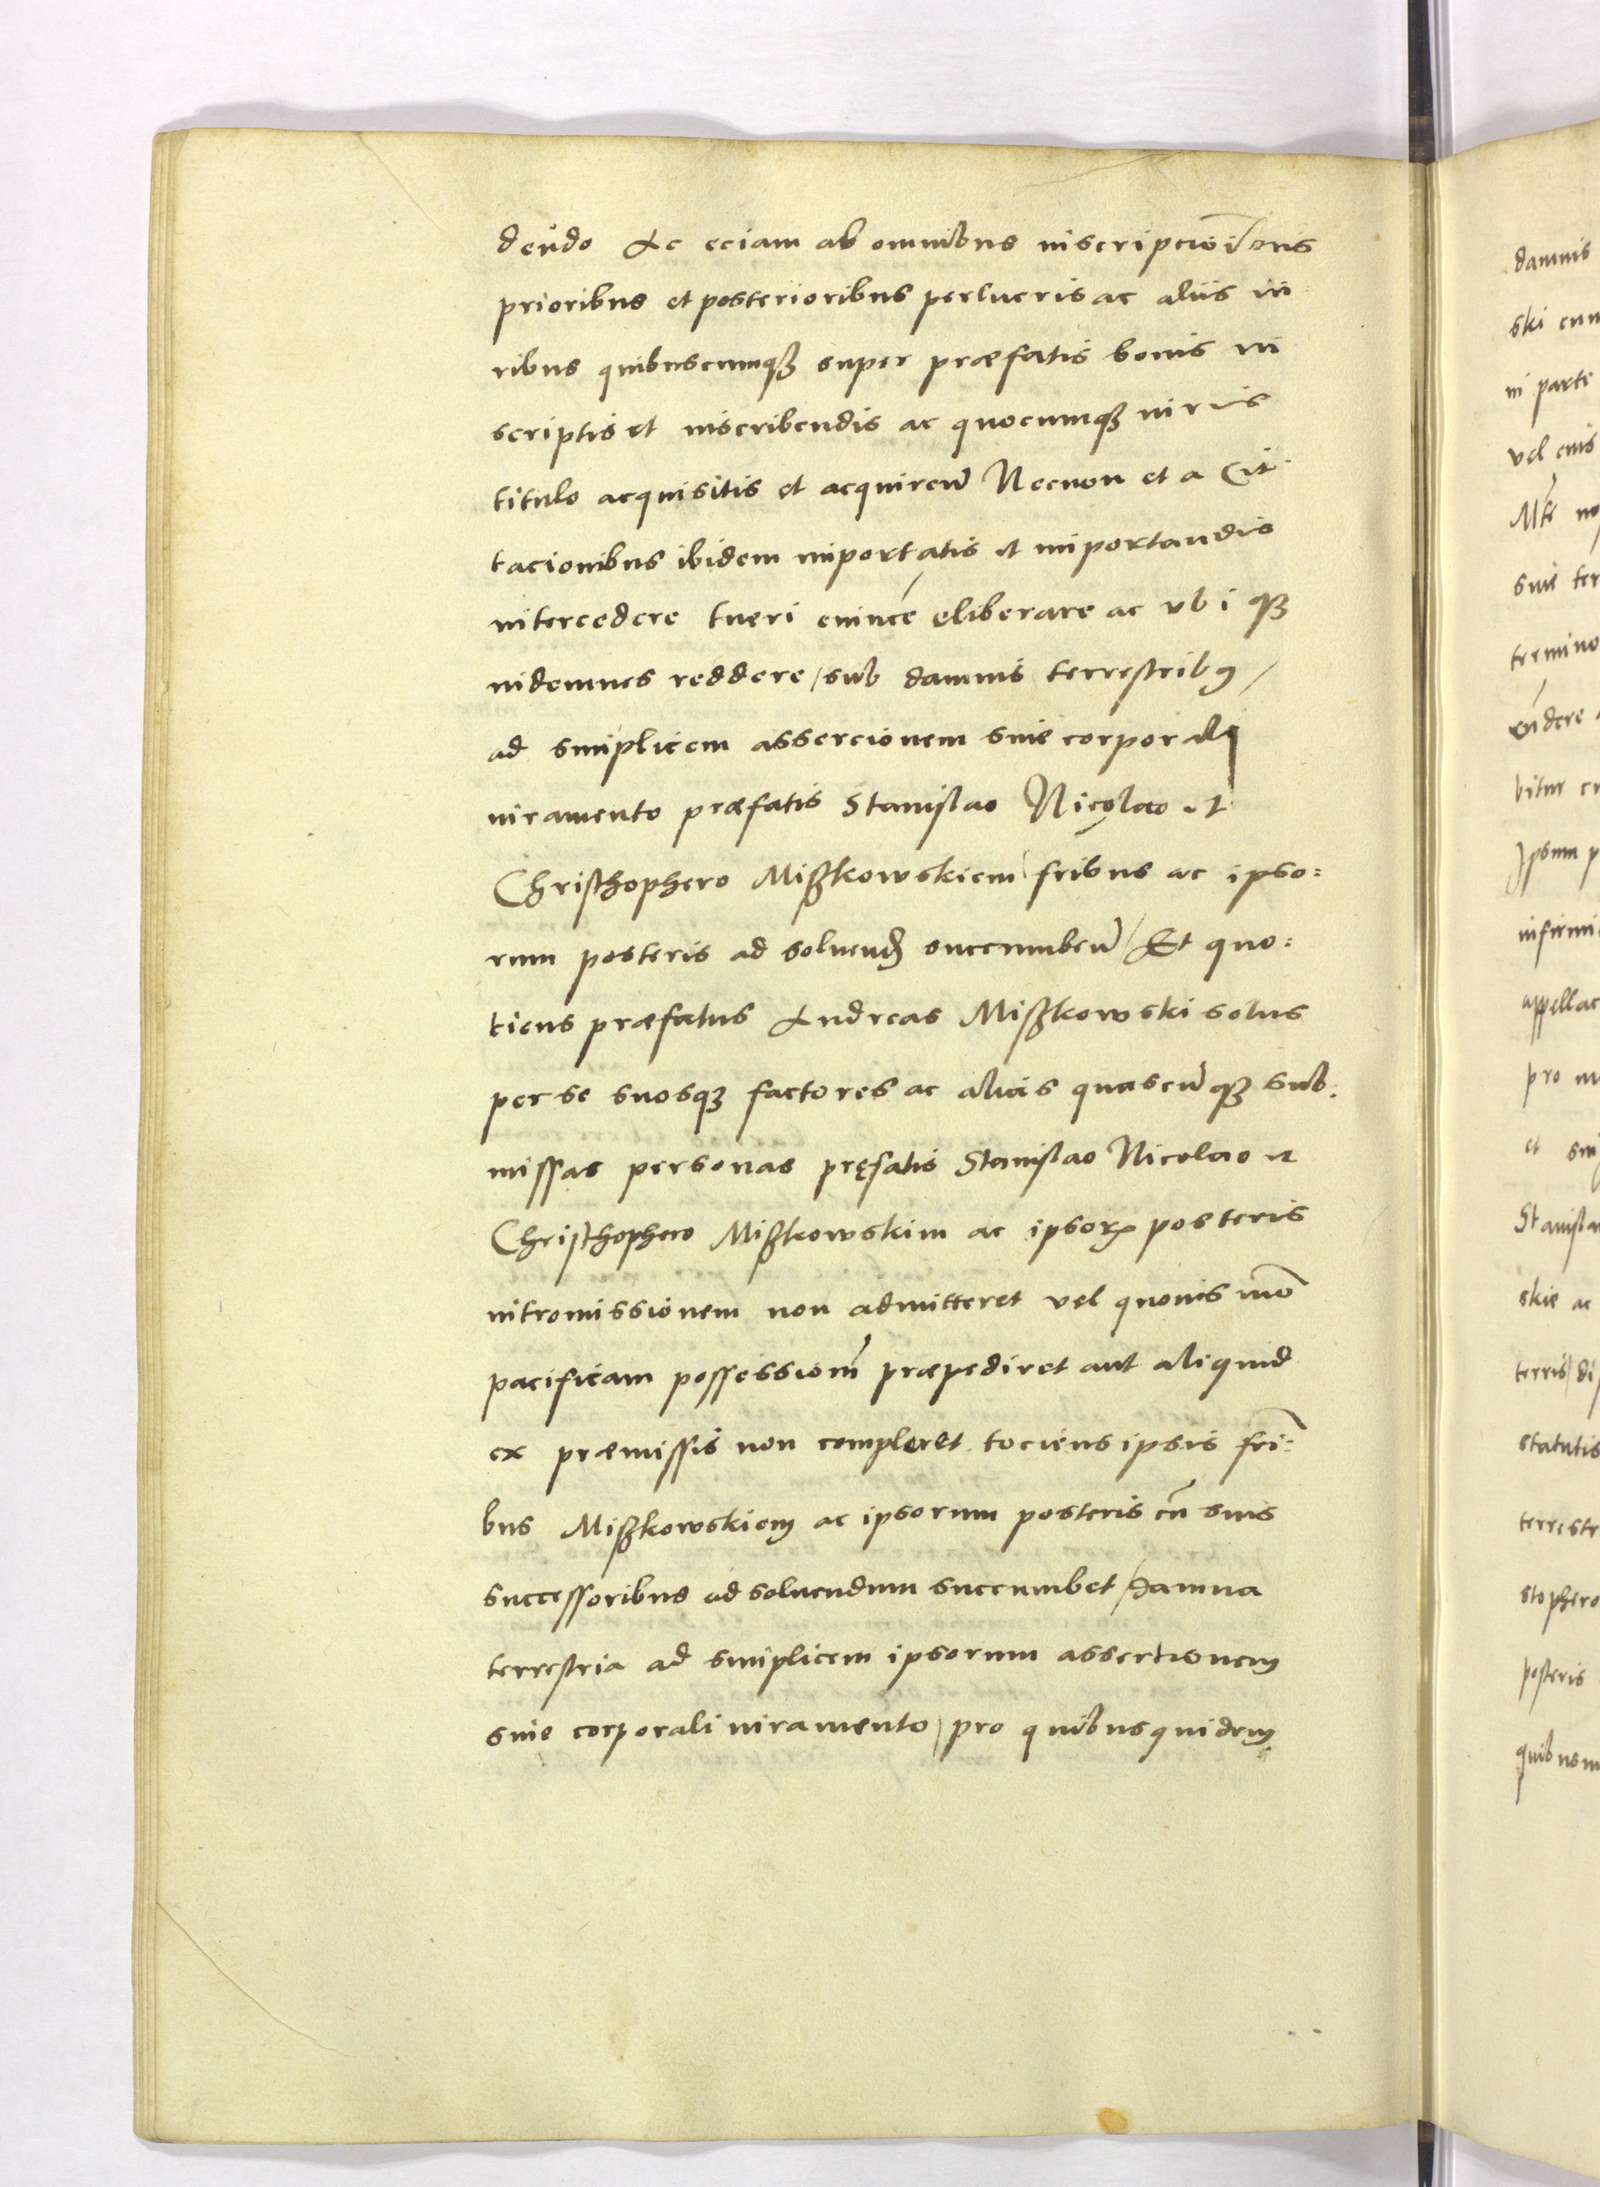 dendo Ac eciam ab omnibus inscripcioībus
prioribus et posterioribus perlucris ac aliis iu
ribus quibuscumqȝ super præfatis bonis in
scriptis et inscribendis ac quocumqȝ iuris
titulo acquisitis et acquireñ Necnon et a Cit
tacionibus ibidem importatis et importandis
intercedere tueri euincē eliberare ac vbiqȝ
indemnes reddere / sub damnis terrestribꝰ /
ad simplicem assercionem sine corporali
iuramento præfatis Stanislao Nicolao et
Christhophero Mißkowskiem / fribus ac ipso:
rum posteris ad soluenđ succumbeñ / Et quo:
tiens præfatus Andreas Mißkowski solus
per se suosqȝ factores ac alias quascūqȝ sub:
missas personas pręfatis Stanislao Nicolao et
Christhophero Mißkowskim ac ipsorꝝ posteris
intromissionem non admitteret vel quouis mō
pacificam possessionē præpediret aut aliquid
ex præmissis non compleret tociens ipsis frī:
bus Mißkowskiem ac ipsorum posteris cū suis
successoribus ad soluendum succumbet / damna
terrestria ad simplicem ipsorum assertionem
sine corporali iuramento / pro quibusquidem
damnis
ski cum
in parte
vel eius
Mte
sine ter
termino
bitur
Ipsum p
infirmi
appellac
pro
et sim
Stanisla
skie ac
terris / di
statutis
terrestr
stophero
posteris
quibus